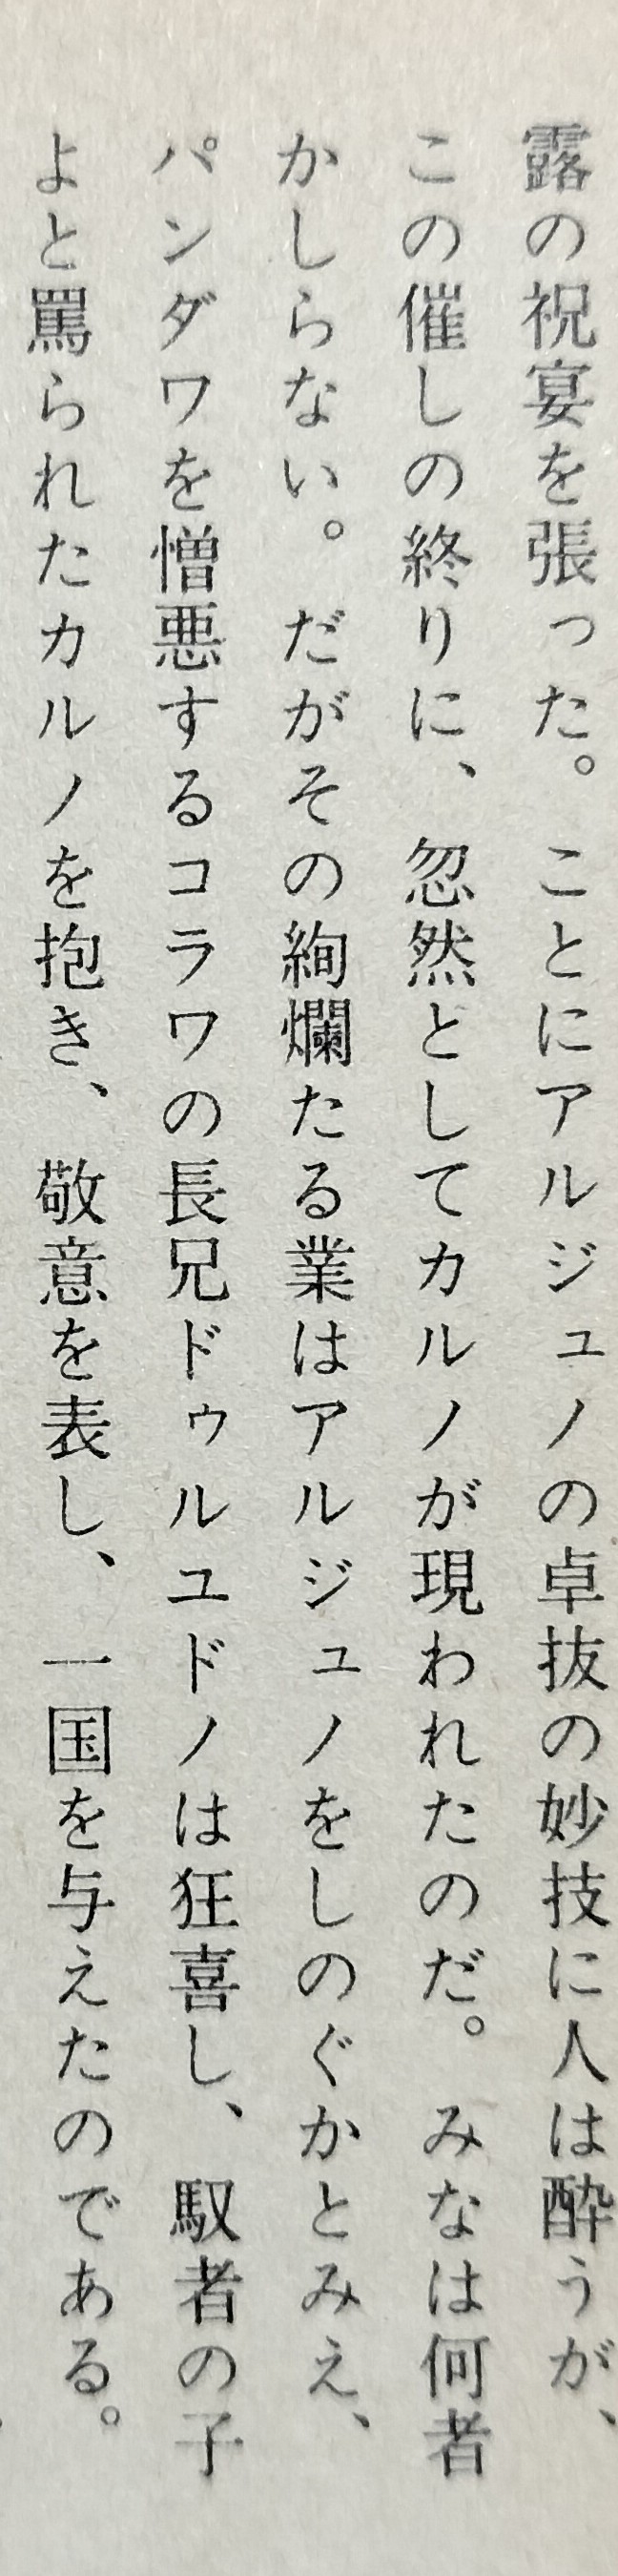 露の祝宴を張った。ことにアルジュノの卓抜の妙技に人は酔うが、
この催しの終りに、忽然としてカルノが現われたのだ。みなは何者
かしらない。だがその絢爛たる業はアルジュノをしのぐかとみえ、
パンダワを憎悪するコラワの長兄ドゥルユドノは狂喜し、馭者の子
よと罵られたカルノを抱き、敬意を表し、一国を与えたのである。